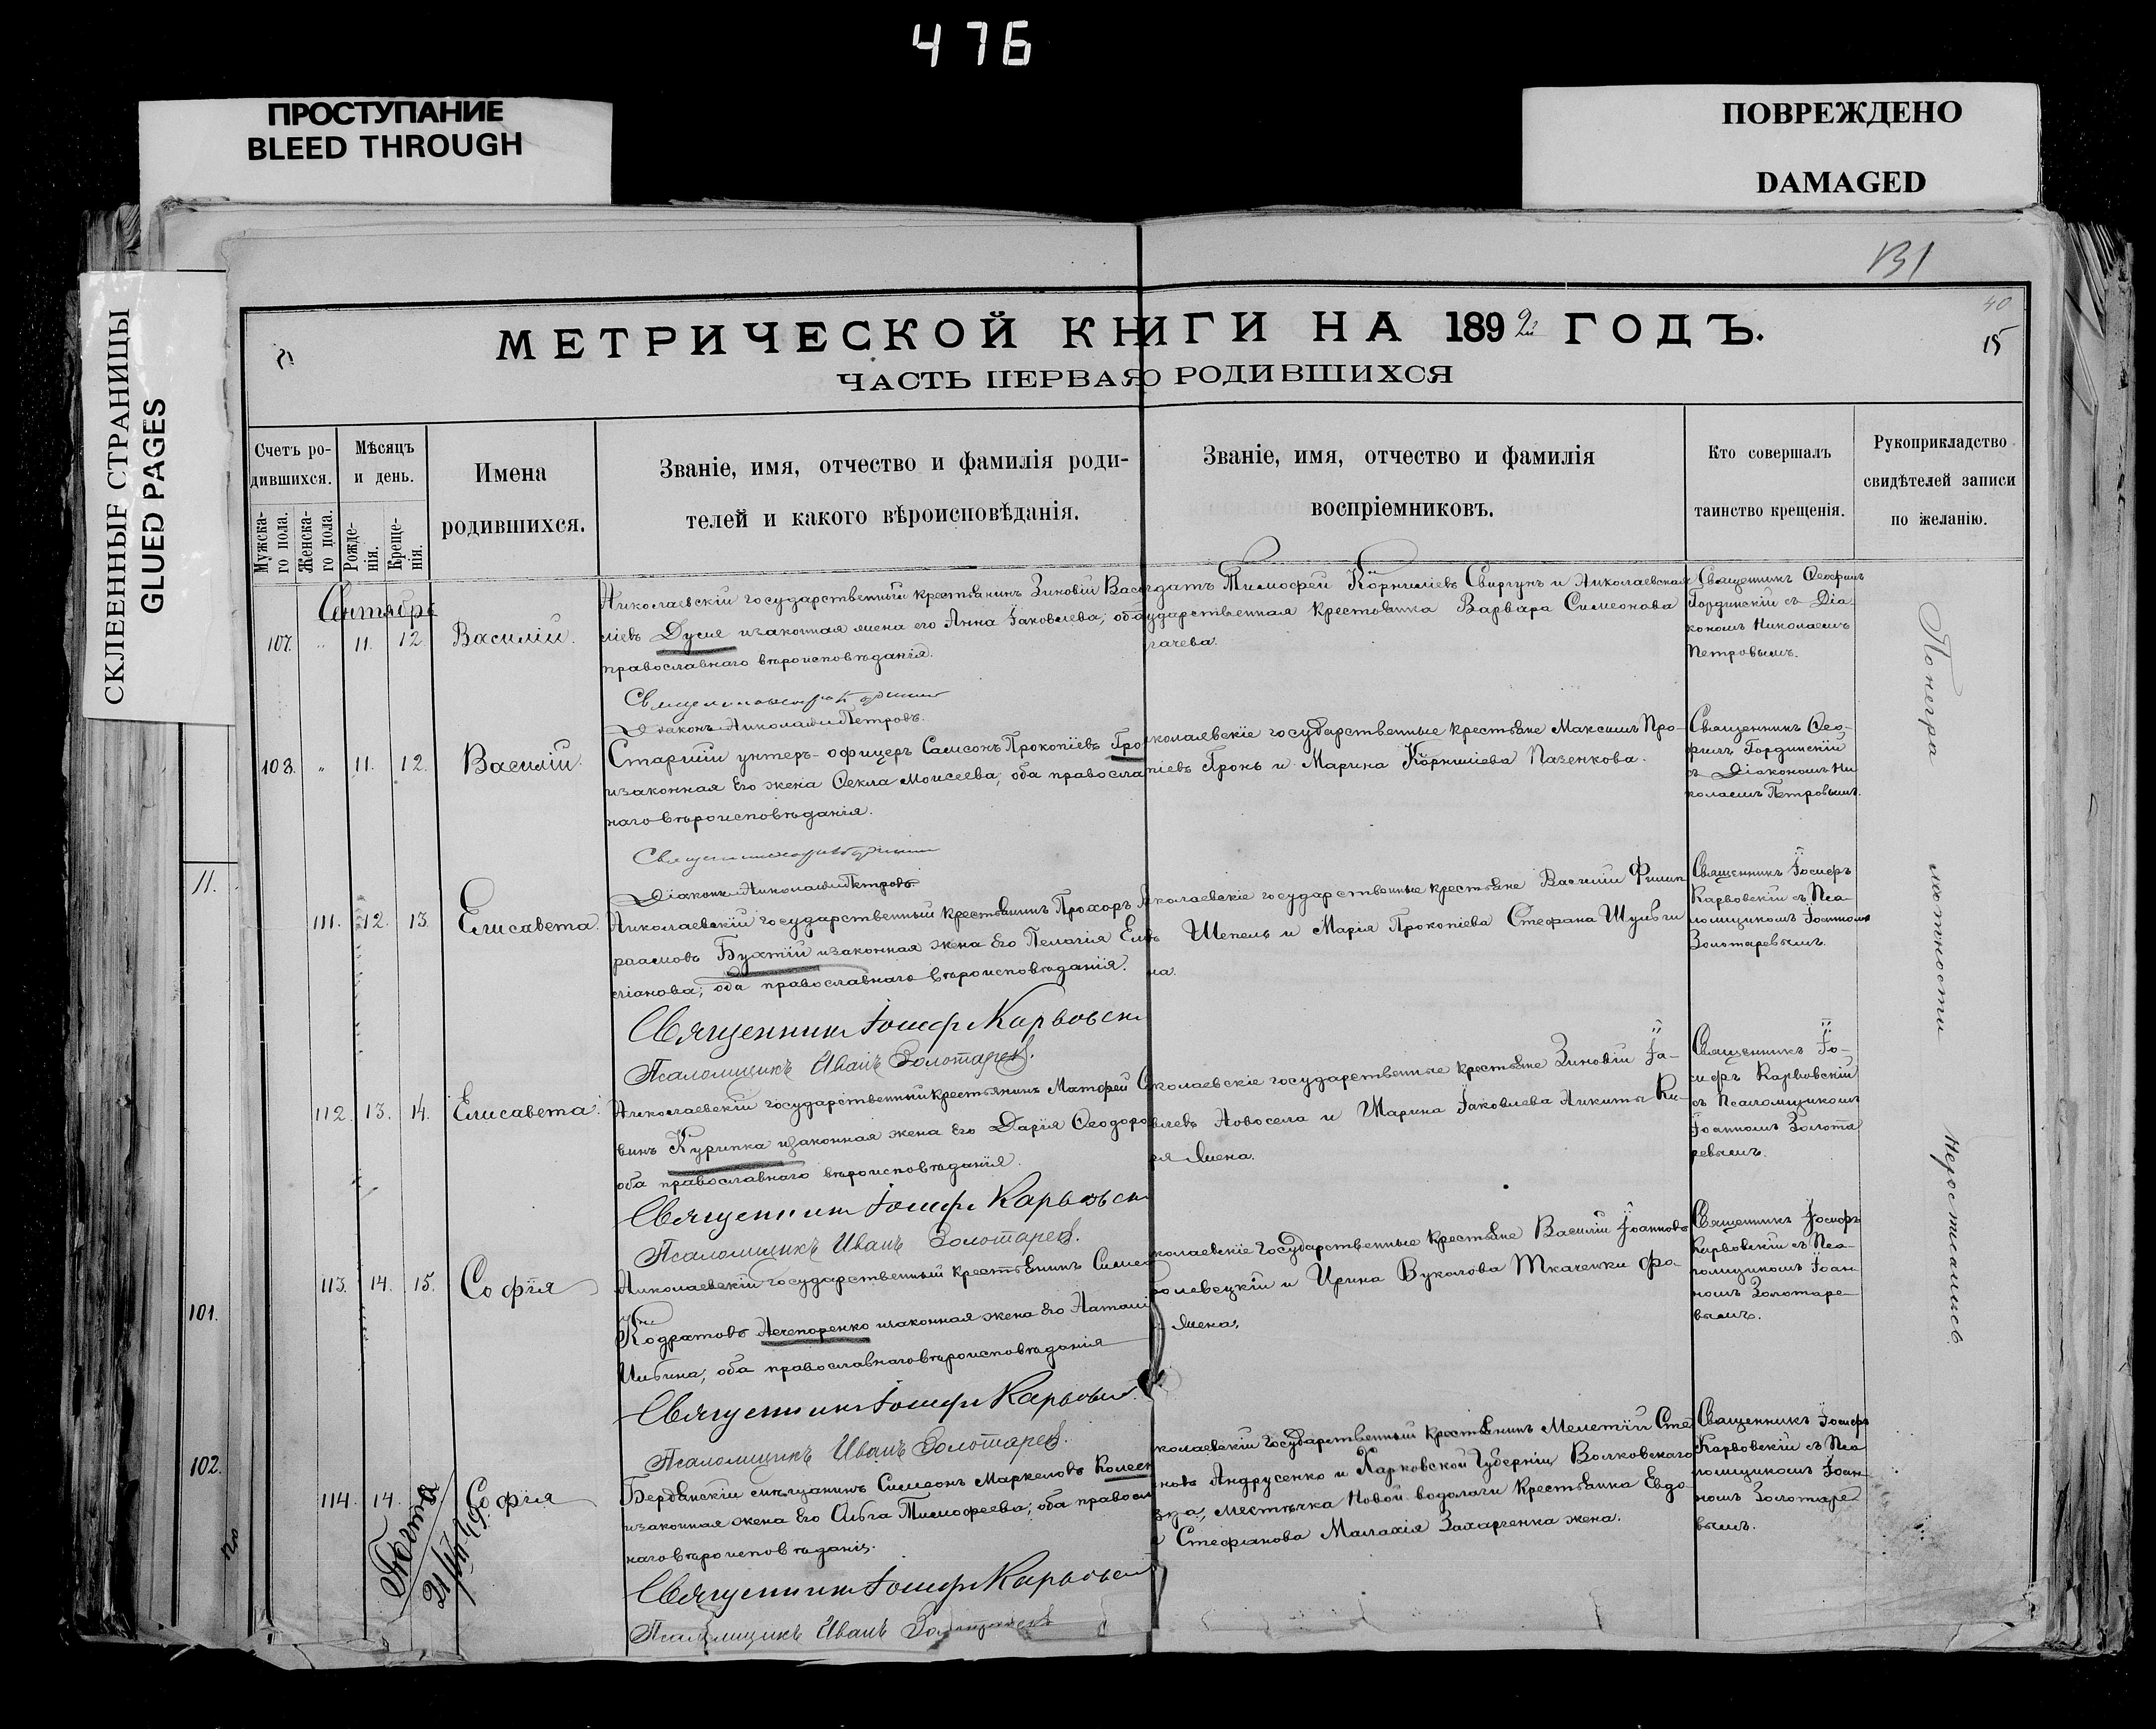 476
ПРОСТУПАНИЕ
BLEED THROUGH
ПОВРЕЖДЕНО
DAMAGED
СКЛЕЕННЫЕ СТРАНИЦЫ
GLUED PAGES
131
40
15
МЕТРИЧЕСКОЙ КНИГИ НА 1892й ГОДЪ.
ЧАСТЬ ПЕРВАЯ О РОДИВШИХСЯ
Счетъ ро-
дившихся.
Мужска-
го пола.
Женска-
го пола.
Мѣсяцъ
и день.
Рожде-
нія.
Креще-
нія.
Имена
родившихся.
Званіе, имя, отчество и фамилія роди-
телей и какого вѣроисповѣданія.
Званіе, имя, отчество и фамилія
воспріемниковъ.
Кто совершалъ
таинство крещенія.
Рукоприкладство
свидѣтелей записи
по желанію.
Сентябрь
107. " 11. 12. Василій.
Николаевскій государственный крестьянинъ Зиновій Васи
ліевъ Дуся и законная жена его Анна Іаковлева; оба
православнаго вѣроисповѣданія.
Діаконъ Николай Петровъ.
датъ Тимофей Корниліевъ Свиргунъ и Николаевская
ударственная крестьянка Варвара Симеонова
гачева.
Священникъ Ѳеофилъ
Гординскій съ Діа-
кономъ Николаемъ
Петровымъ.
108. " 11. 12. Василій.
Старшій унтеръ-офицеръ Самсонъ Прокопіевъ Про
и законная его жена Ѳекла Моисеева; оба правосла
наго вѣроисповѣданія.
Діаконъ Николай Петровъ.
колаевскіе государственные крестьяне Максимъ Про-
піевъ Пронь и Марина Корниліева Пазенкова.
Священникъ Ѳео-
филъ Гординскій
съ Діакономъ Ни
колаемъ Петровымъ.
11.
111. 12. 13. Елисавета.
Николаевскій государственный крестьянинъ Прохоръ
раамовъ Бухтій и законная жена его Пелагія Ем
ліанова; оба православнаго вѣроисповѣданія.
Священникъ Іосифъ Карвовскі
Псаломщикъ Иванъ Золотаревъ.
колаевскіе государственные крестьяне Василій Филип
въ Шепель и Марія Прокопіева Стефана Шульги
на.
Священникъ Іосифъ
Карвовскій съ Пса-
ломщикомъ Іоанномъ
Золотаревымъ.
112. 13. 14. Елисавета.
Николаевскій государственный крестьянинъ Матфей
винъ Курипка и законная жена его Дарія Ѳеодоро
оба православнаго вѣроисповѣданія.
Священникъ Іосифъ Карвовскі
Псаломщикъ Иванъ Золотаревъ.
колаевскіе государственные крестьяне Зиновій Іа-
влевъ Новосела и Марина Іаковлева Никиты Ки-
ря жена.
Священникъ Іо-
сифъ Карвовскій
съ Псаломщикомъ
Іоанномъ Золота
ревымъ.
101.
113. 14. 15. Софія
Николаевскій государственный крестьянинъ Симео
Кодратовъ Нечепоренко и законная жена его Наталі
Ильина; оба православнаго вѣроисповѣданія
Священникъ Іосифъ Карвовскі
Псаломщикъ Иванъ Золотаревъ.
колаевскіе государственные крестьяне Василій Іоанновъ
олевецкій и Ирина Вуколова Ткаченки
жена.
Священникъ Іосифъ
Карвовскій съ Пса-
ломщикомъ Іоан-
номъ Золотаре-
вымъ.
102.
114. 14. Софія
Бердянскій мѣщанинъ Симеонъ Маркеловъ Колесн
и законная жена его Ольга Тимофеева; оба правосл
наго вѣроисповѣданія.
Священникъ Іосифъ Карвовскі
Псаломщикъ Иванъ Золотаревъ
колаевскій государственный крестьянинъ Мелетій Сте
новъ Андрусенко и Харковской Губерніи Волковскаго
зда, мѣстечка Новой водолаги крестьянка Евдо
Стефанова Малахія Захарченка жена.
Священникъ Іосифъ
Карвовскій съ Пса
ломщикомъ Іоан-
номъ Золотаре
вымъ.